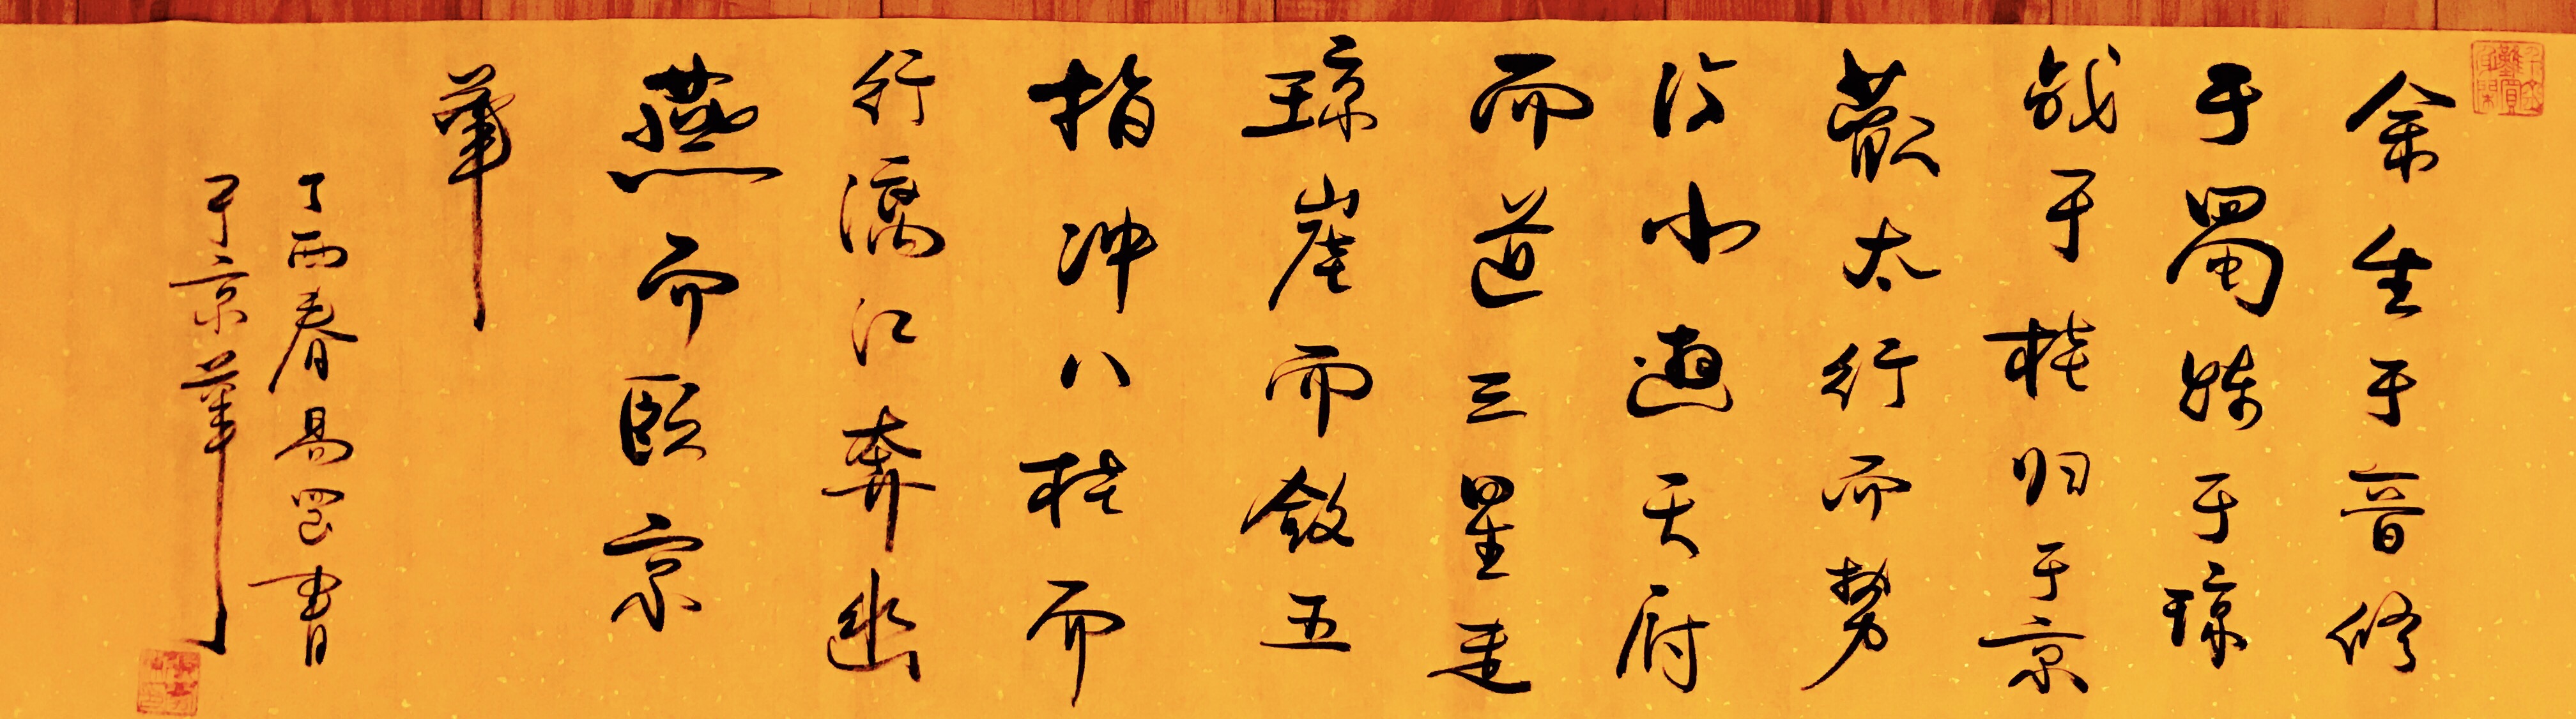 余生于晋修
于蜀蛛于琼
战于桂归于京
散太行而势
汾水遨天府
而道三星走
琼崖而敛五
指冲八桂而
行漓江奔幽
燕而卧京
华
丁酉春易罡书
于京华